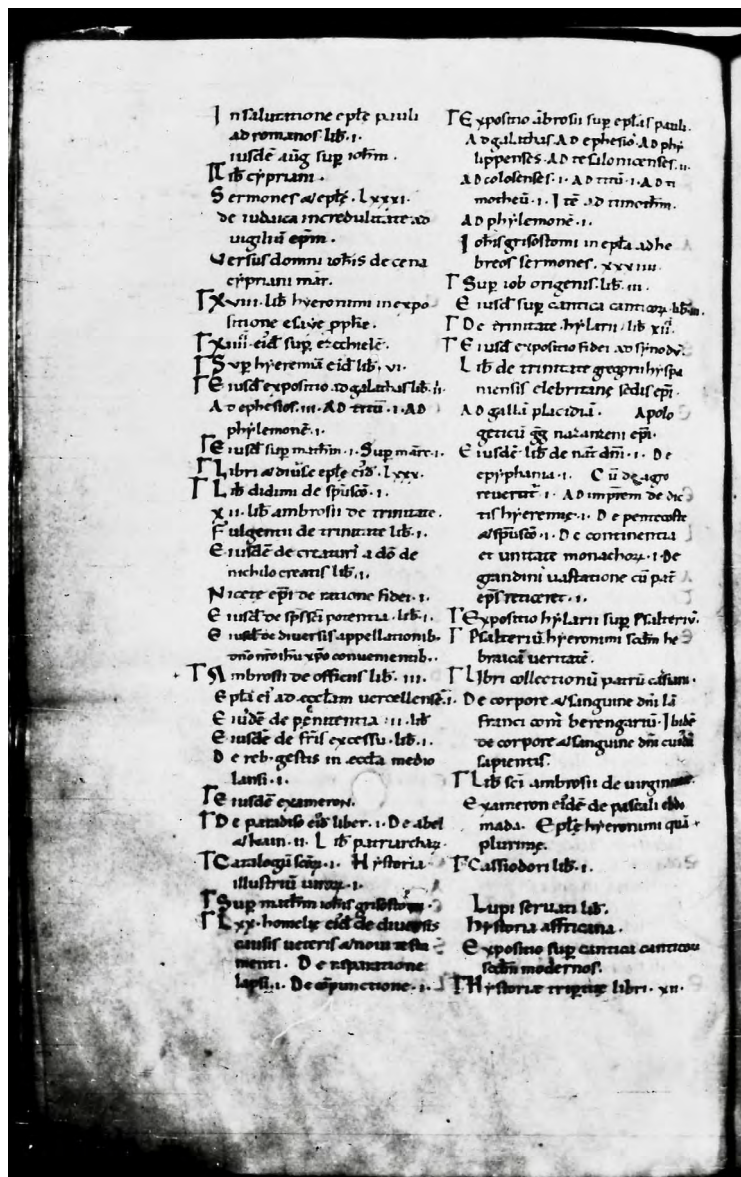 In salutatione eplę pauli
ad romanos lib̄. i.
iusdē aug̃ sup ioh̄m.
lib̄ cẏpriani.
Sermones & eplę. Lxxxi.
de iudaica incredulitate ad
uigiliū ep̄m.
Versus domni ioh̄is de cena
cẏpriani mar̄.
Γ Xviii. lib̄ hẏeronimi in expo
sitione esaẏę pph̄e.
Γ Xiiii. eid̄ sup ezechielē.
Γ Sup hẏeremiā eid̄ lib̄. vi.
Γ Eiusd̄ expositio ad galathas lib̄. ii.
Ad ephesios. iii. Ad titū. i. Ad
phẏlemonē. i.
Γ Eiusd̄ sup math̄m. i. Sup marc̄. i.
Γ Libri & diuīse eplę eid̄. Lxxx.
Γ Lib̄ didimi de sp̄usc̄o. i.
xii. lib̄ ambrosii de trinitate.
Fulgentii de trinitate lib̄. i.
Eiusdē de creaturis a dō de
nichilo creatis lib̄. i.
Nicete ep̄i de ratione fidei. i.
Eiusd̄ de sp̄ssc̄i potentia. lib̄. i.
Eiusd̄ de diuersis appellationib.
dn̄o nr̄o ih̄u xp̄o conuenientib.
Γ Ambrosii de officiis lib̄. iii.
Epl̄a ei ad eccl̄am uercellensē. i.
Eiusdē de penitentia. ii. lib̄
Eiusdē de fr̄is excessu. lib̄. i.
De reb. gestis in eccl̄a medio
lansi. i.
Γ Eiusdē exameron.
Γ De paradiso eid̄ liber. i. De abel
& kain. ii. Lib̄ patriarchaꝝ.
Γ Catalogū sc̄oꝝ. i. Hẏstoria
illustriū uiroꝝ. i.
Γ Sup math̄m ioh̄is grisostomi.
Γ Lxx. homelię eid̄ de diuersis
causis ueteris & noui testa
menti. De reparatione
lapsi. i. De cōpunctione. i.
Γ Expositio ābrosii sup epl̄as pauli.
Ad galathas. Ad ephesiō. Ad phẏ
lippenses. Ad tesalonicenses. ii.
Ad colosenses. i. Ad titū. i. Ad ti
motheū. i. Itē ad timoth̄m.
Ad phẏlemonē. i.
Ioh̄is grisostomi in epl̄a ad he
breos sermones. xxxiiii.
Γ Sup iob origenis. lib̄. iii.
Eiusd̄ sup cantica canticoꝝ. lib̄. iii.
Γ De trinitate hẏlarii. lib̄ xii.
Γ Eiusd̄ expositio fidei ad sẏnodū.
Lib̄ de trinitate gregorii hẏspa
niensis elebritanę sedis ep̄i.
Ad gallā placidiā. Apolo
geticū gg̃ nazanzeni ep̄i.
Eiusdē. lib̄ de nat̄ dn̄i. i. De
epẏphania. i. Cū de agro
reuertit̄. i. Ad imp̄rem de dic
tis hẏeremię. i. De pentecoste
& sp̄usc̄o. i. De continentia
et unitate monachoꝝ. i. De
grandini uastatione cū pat̄
ep̄s reticeret. i.
Γ Expositio hẏlarii sup Psalteriū.
Γ Psalteriū hẏeronimi scdm̄ he
braicā ueritatē.
Γ Libri collectionū patrū cassiani.
De corpore & sanguine dn̄i lā
franci cont̄ berengariū. Ibidē
de corpore & sanguine dn̄i cuidā
sapientis.
Γ Lib̄ sc̄i ambrosii de uirginitate.
Exameron eidē de pascali ebdo
mada. Eplę hẏeronimi quā
plurimę.
Γ Cassiodori lib̄. i.
Lupi seruati lib̄.
Hẏstoria affricana.
Expositio sup cantica canticoꝝ
scdm̄ modernos.
Γ Hẏstorię tripertitę libri. xii.